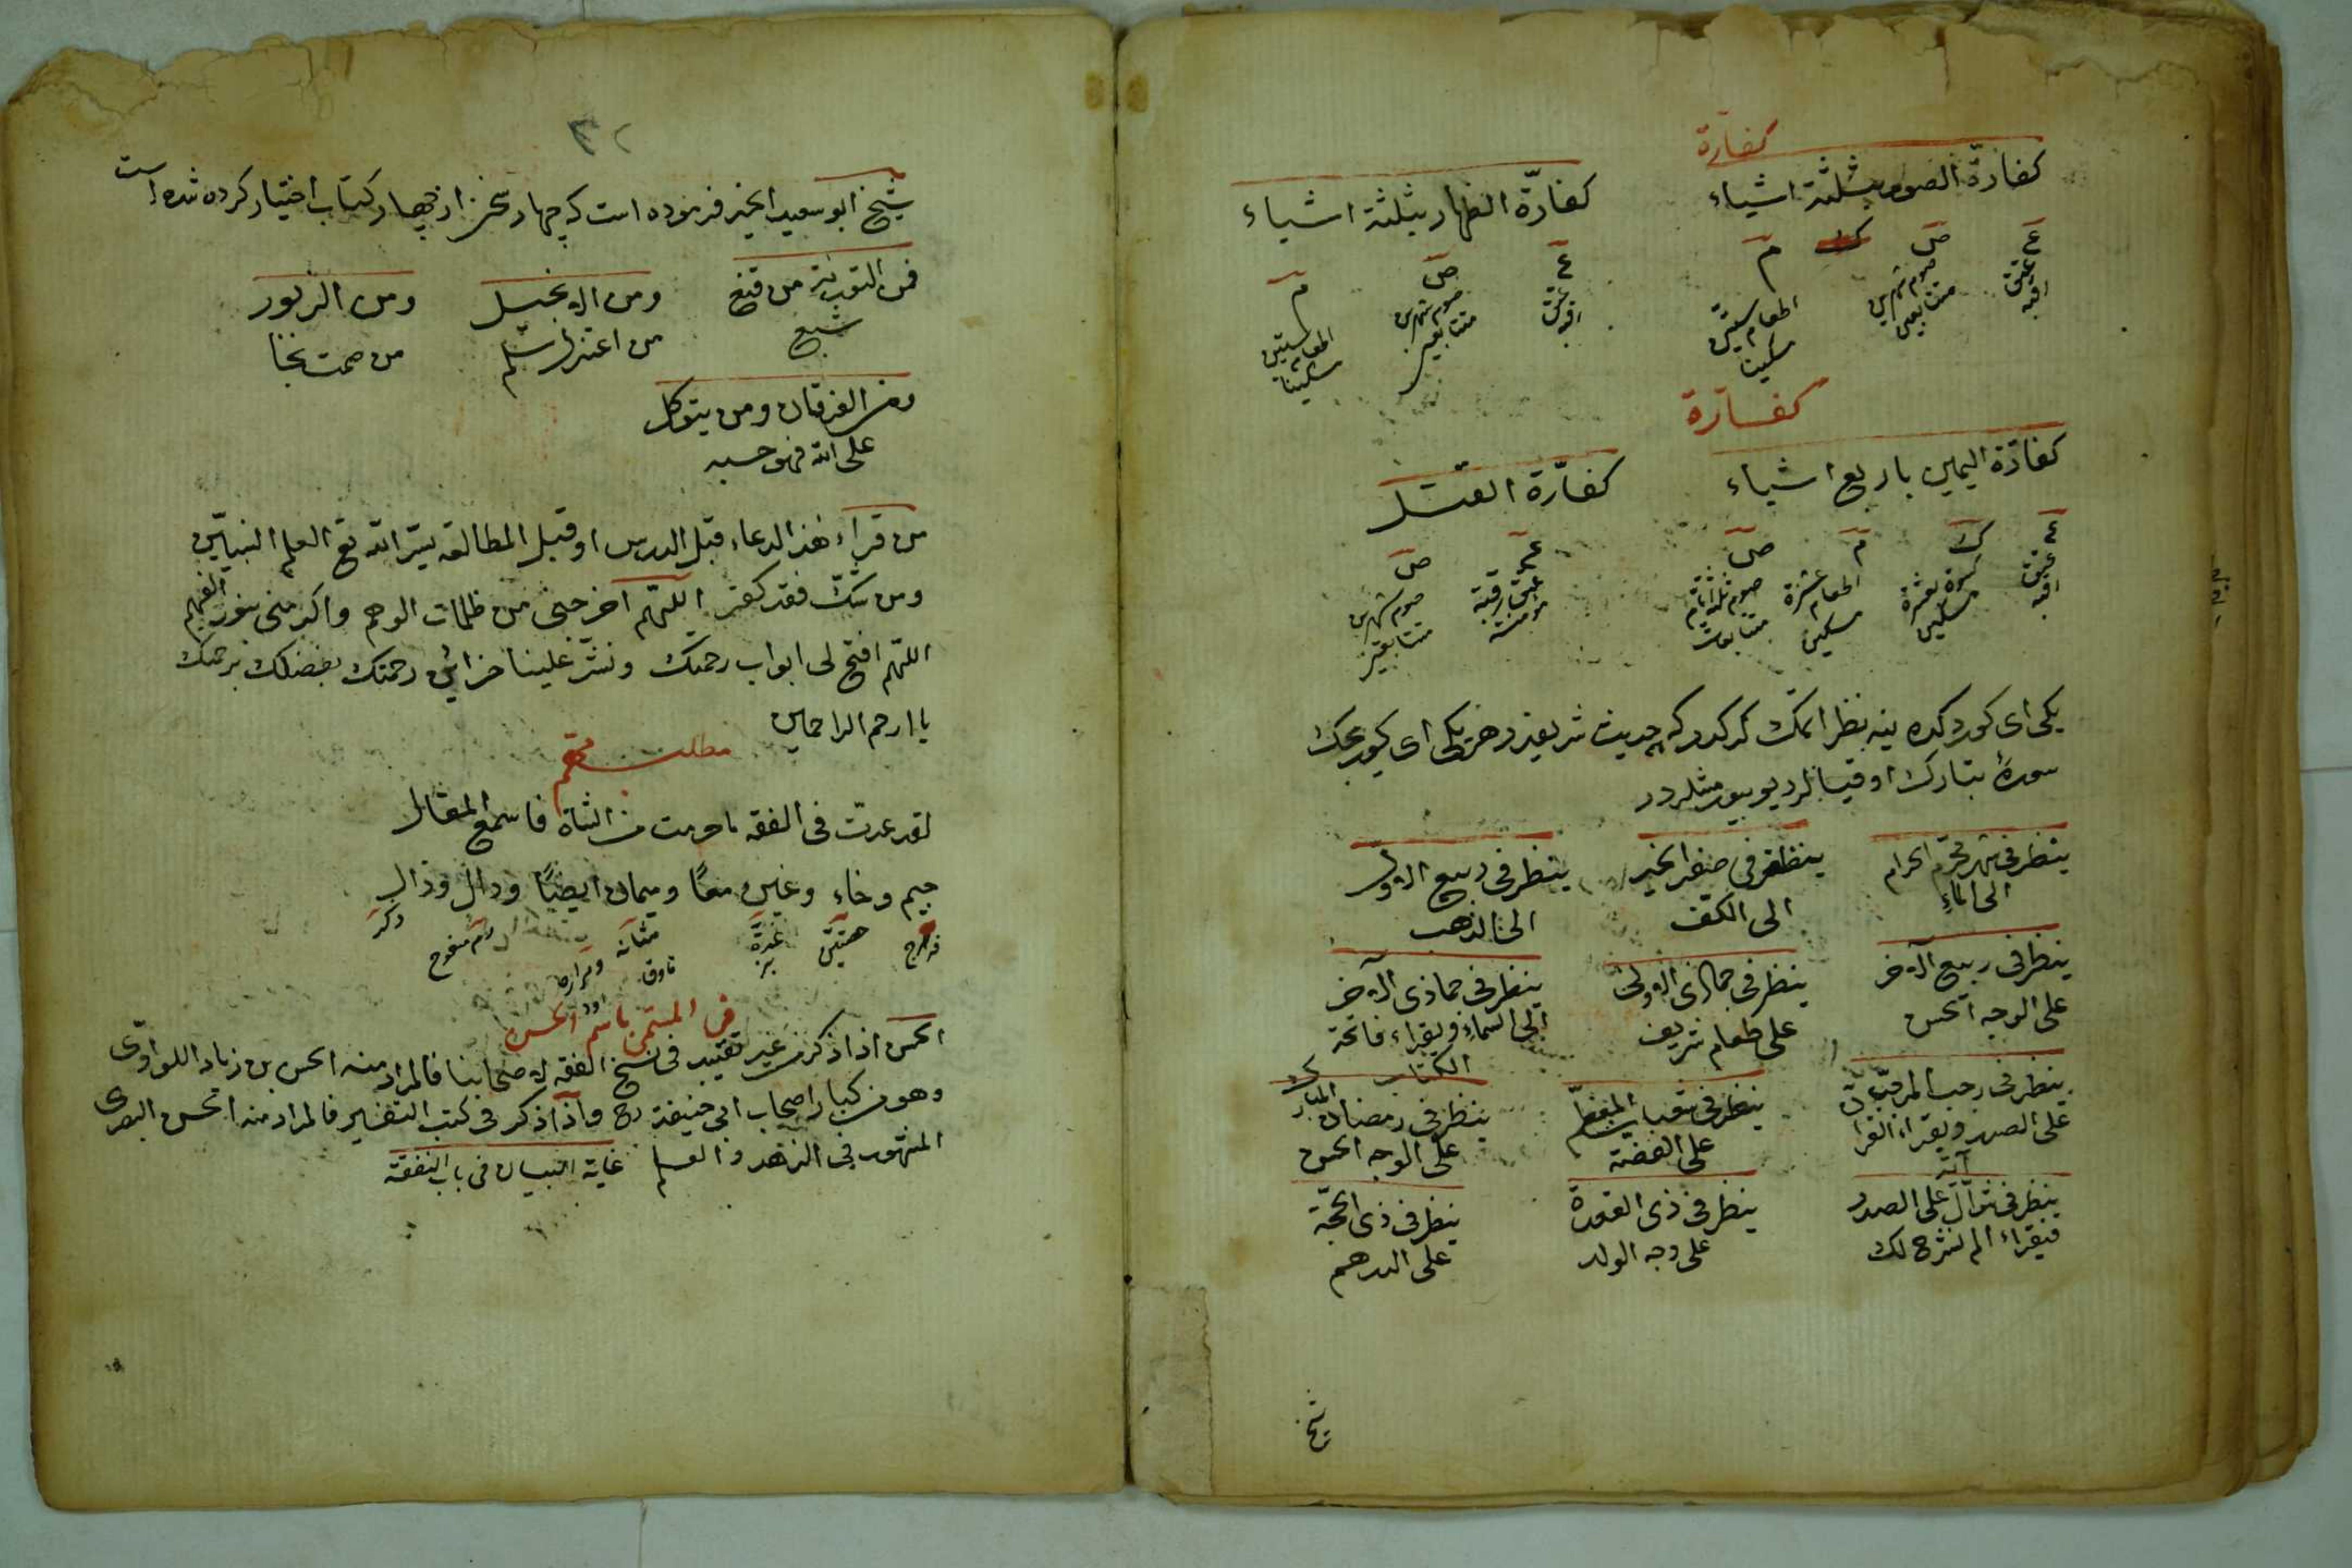 كفارة
كفارّة الصوم بثلثة اشياء
كفارّة الظهار بثلثة اشياء
ع ص م
عتق رقبة
صوم شهرين متتابعين
اطعام ستين مسكينا
ع ص م
عتق رقبة
صوم شهرين متتابعين
اطعام ستين مسكينا
كفارة
كفارّة اليمين باربع اشياء
كفارّة القتل
ع ك م ص
عتق رقبة
كسوة عشرة مسكين
اطعام عشرة مسكين
صوم ثلثة ايام متتابعات
ع ص
عتق رقبة مؤمنة
صوم شهرين متتابعين
يكى اى كوردكده ينه نظر اتمك كركدر كه حديث شريفدر هر يكى اى كورجك
سورهٔ تبارك اوقيالر ديو بيورمشلردر
ينظر فى شهر محرّم الحرام
الى الماءِ
ينظر فى صفر الخير
الى الكفّ
ينظر فى ربيع الاول
الى الذهب
ينظر فى ربيع الآخر
على الوجه الحسن
ينظر فى جماذى الاولى
على طعام شريف
ينظر فى جماذى الآخر
الى السماءِ ويقراء فاتحة
الكتاب
ينظر فى رجب المرجّب
على الصدر ويقراء القرآن
آية
ينظر فى شعبان المعظّم
على الفضّة
ينظر فى رمضان المبارك
على الوجه الحسن
ينظر فى شوّال على الصدر
فيقراء الم نشرح لك
ينظر فى ذى القعدة
على وجه الولد
ينظر فى ذى الحجّة
على الدرهم
شيخ
٣٢
شيخ ابو سعيد الخير فرموده است كه چهار سخن از چهار كتاب اختيار كرده شده است
فمن التورية من قنع
شبع
ومن الانجيل
من اعتزل سلم
ومن الزبور
من صمت نجا
ومن الفرقان ومن يتوكل
على الله فهو حسبه
من قراء هذا الدعاء قبل الدرس او قبل المطالعة يسّر الله تع العلم النبيّين
ومن شكّ فقد كفر اللهم اخرجنى من ظلمات الوهم واكرمنى بنور الفهم
اللهم افتح لى ابواب رحمتك ونشر علينا خزائن رحمتك بفضلك برحمتك
يا ارحم الراحمين
مطلب مهم
لقد عدت فى الفقه ما حرمت من الشاة فاسمع المقال
جيم وخاء وغين معًا وميمان ايضًا ودال وذال
فرج
غدة
مثانه
ومراره
دم مسفوح
ذكر
فى المسمّى باسم الحسن
الحسن اذا ذكر من غير تقييد فى نسخ الفقه لاصحابنا فالمراد منه الحسن بن زياد اللواوى
وهو من كبار اصحاب ابى حنيفة رح واذا ذكر فى كتب التفسير فالمراد منه الحسن البصرى
المشهور فى الزهد والعلم غاية البيان فى باب النفقة